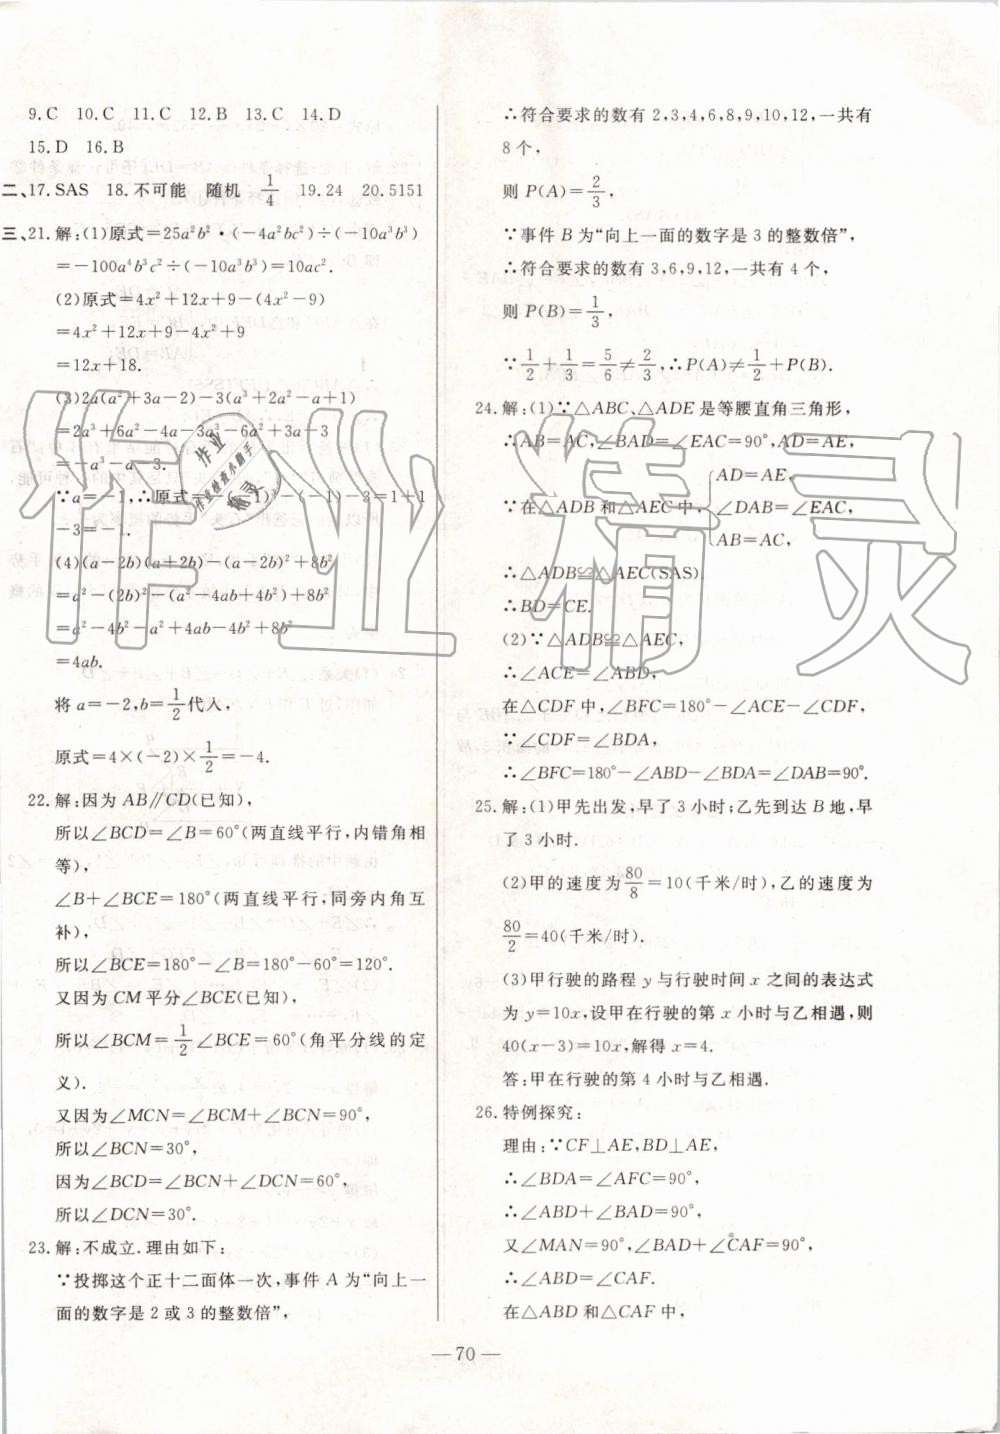 9.C 10.C 11.C 12.B 13.C 14.D
15.D 16.B
二、17.SAS 18.不可能 随机 1/4 19.24 20.5151
三、21.解:(1)原式=25a²b²·(-4a²bc²)÷(-10a³b³)
=-100a⁴b³c²÷(-10a³b³)=10ac².
(2)原式=4x²+12x+9-(4x²-9)
=4x²+12x+9-4x²+9
=12x+18.
(3)2a(a²+3a-2)-3(a³+2a²-a+1)
=2a³+6a²-4a-3a³-6a²+3a-3
=-a³-a-3.
∵a=-1,∴原式=-(-1)³-(-1)-3=1+1
-3=-1.
(4)(a-2b)(a+2b)-(a-2b)²+8b²
=a²-(2b)²-(a²-4ab+4b²)+8b²
=a²-4b²-a²+4ab-4b²+8b²
=4ab.
将 a=-2,b=1/2代入,
原式=4×(-2)×1/2=-4.
22.解:因为 AB∥CD(已知),
所以∠BCD=∠B=60°(两直线平行,内错角相
等),
∠B+∠BCE=180°(两直线平行,同旁内角互
补),
所以∠BCE=180°-∠B=180°-60°=120°.
又因为 CM 平分∠BCE(已知),
所以∠BCM=1/2∠BCE=60°(角平分线的定
义).
又因为∠MCN=∠BCM+∠BCN=90°,
所以∠BCN=30°.
因为∠BCD=∠BCN+∠DCN=60°,
所以∠DCN=30°.
23.解:不成立.理由如下:
∵投掷这个正十二面体一次,事件 A 为“向上一
面的数字是 2 或 3 的整数倍”,
∴符合要求的数有 2,3,4,6,8,9,10,12,一共有
8 个,
则 P(A)=2/3,
∵事件 B 为“向上一面的数字是 3 的整数倍”,
∴符合要求的数有 3,6,9,12,一共有 4 个,
则 P(B)=1/3,
∵1/2+1/3=5/6≠2/3,∴P(A)≠1/2+P(B).
24.解:(1)∵△ABC、△ADE 是等腰直角三角形,
∴AB=AC,∠BAD=∠EAC=90°,AD=AE,
AD=AE,
∵在△ADB 和△AEC 中,∠DAB=∠EAC,
AB=AC,
∴△ADB≌△AEC(SAS).
∴BD=CE.
(2)∵△ADB≌△AEC,
∴∠ACE=∠ABD,
在△CDF 中,∠BFC=180°-∠ACE-∠CDF,
∵∠CDF=∠BDA,
∴∠BFC=180°-∠ABD-∠BDA=∠DAB=90°.
25.解:(1)甲先出发,早了 3 小时;乙先到达 B 地,早
了 3 小时.
(2)甲的速度为80/8=10(千米/时),乙的速度为
80/2=40(千米/时).
(3)甲行驶的路程 y 与行驶时间 x 之间的表达式
为 y=10x,设甲在行驶的第 x 小时与乙相遇,则
40(x-3)=10x,解得 x=4.
答:甲在行驶的第 4 小时与乙相遇.
26.特例探究:
理由:∵CF⊥AE,BD⊥AE,
∴∠BDA=∠AFC=90°,
∴∠ABD+∠BAD=90°,
又∠MAN=90°,∠BAD+∠CAF=90°,
∴∠ABD=∠CAF.
在△ABD 和△CAF 中,
—70—
作业精灵